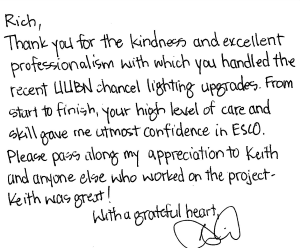 Rich,
Thank you for the kindness and excellent
professionalism with which you handled the
recent UUBN chancel lighting upgrades. From
start to finish, your high level of care and
skill gave me utmost confidence in ESCO.
Please pass along my appreciation to Keith
and anyone else who worked on the project-
Keith was great!
With a grateful heart,